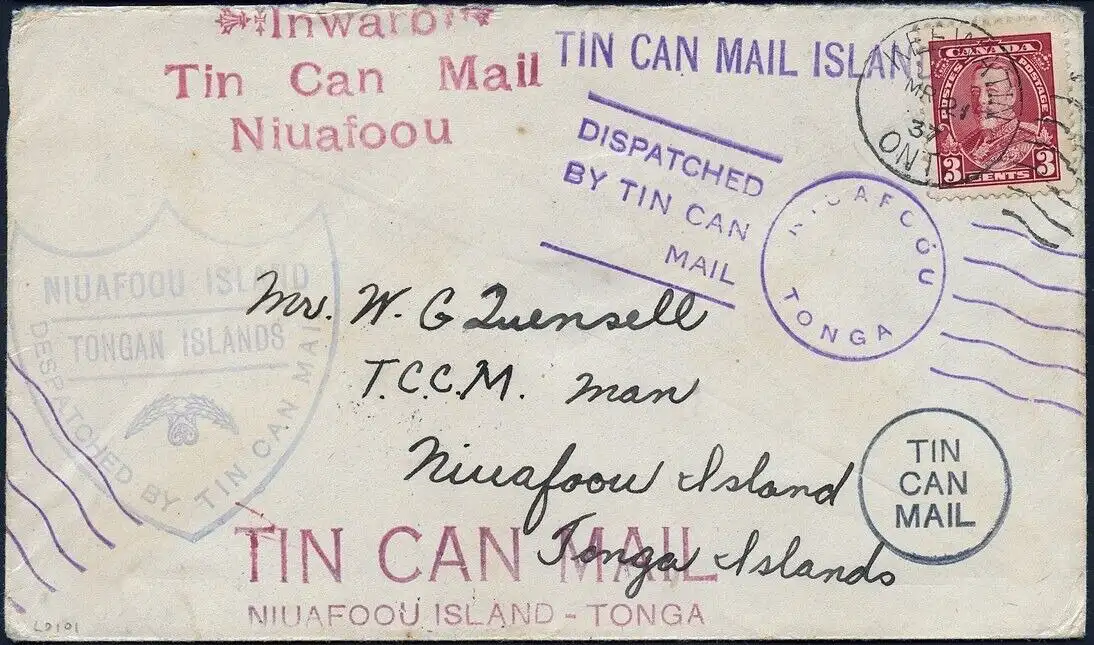 Inward
Tin Can Mail
Niuafoou
TIN CAN MAIL ISLAND
DISPATCHED
BY TIN CAN
MAIL
NIUAFOOU
TONGA
MR 21
37
ONT
CANADA
POSTES POSTAGE
3 CENTS 3
NIUAFOOU ISLAND
TONGAN ISLANDS
DESPATCHED BY TIN CAN MAIL
Mr. W. G Quensell
T.C.C.M. man
Niuafoou Island
Tonga Islands
TIN
CAN
MAIL
TIN CAN MAIL
NIUAFOOU ISLAND - TONGA